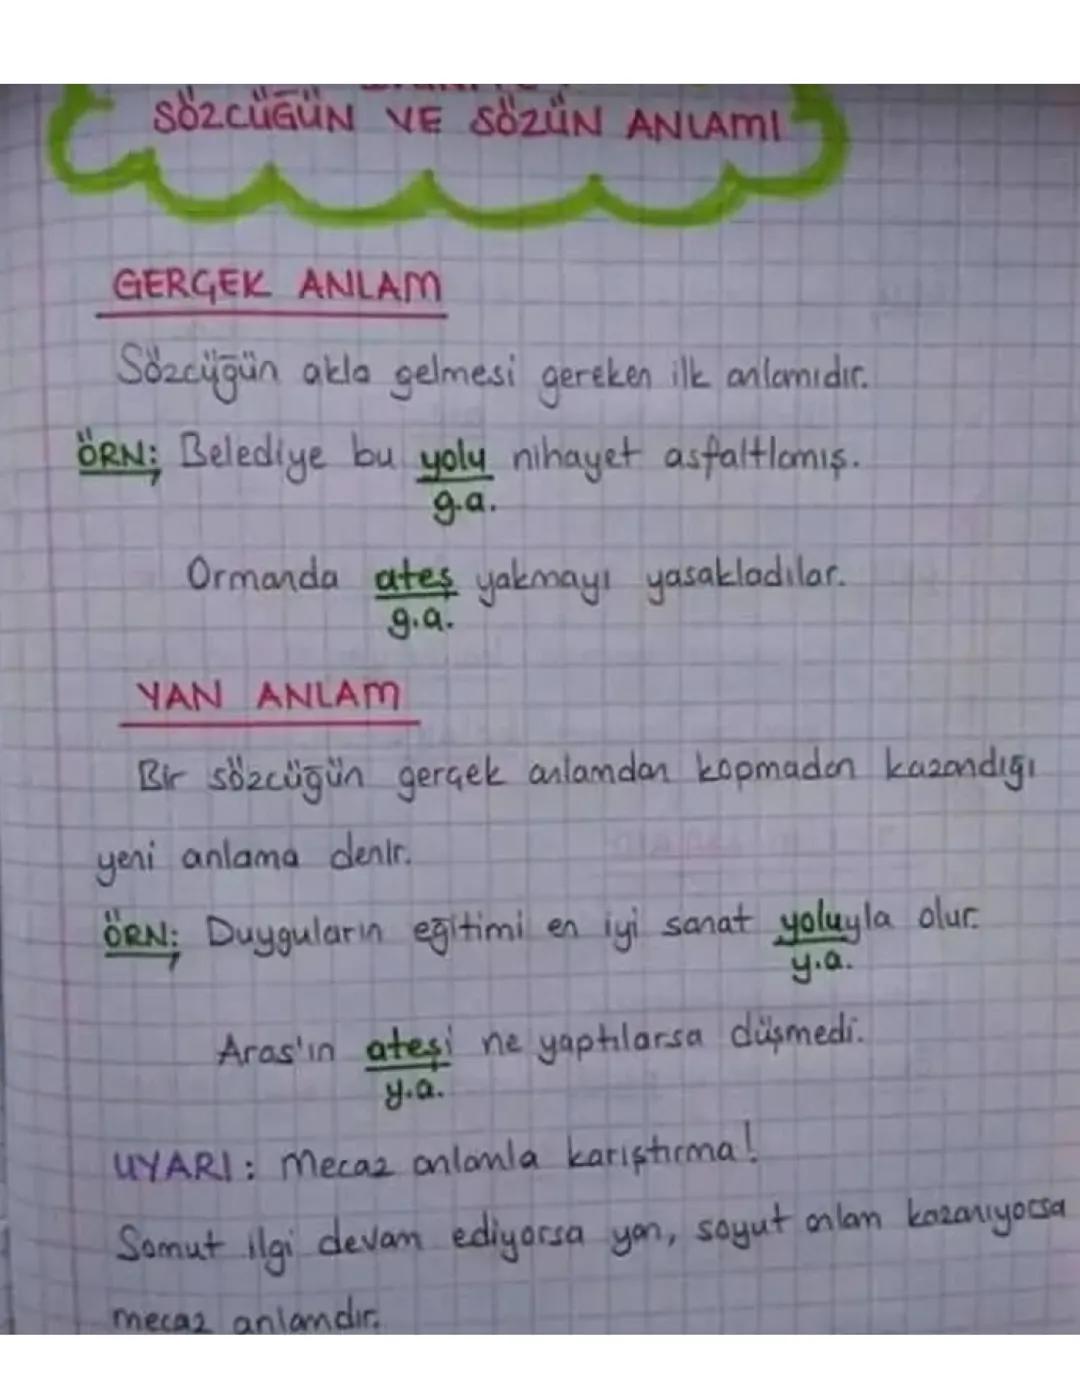 SÖZCÜĞÜN VE SÖZÜN ANLAMI
GERÇEK ANLAM
Sözcüğün akla gelmesi gereken ilk anlamıdır.
ÖRN: Belediye bu yolu nihayet asfaltlamış.
g.a.
Ormanda ateş yakmayı yasakladılar.
g.a.
YAN ANLAM
Bir sözcüğün gerçek anlamdan kopmadan kazandığı
yeni anlama denir.
ÖRN: Duyguların eğitimi en iyi sanat yoluyla olur.
y.a.
Aras'ın ateşi ne yaptılarsa düşmedi.
y.a.
UYARI: Mecaz anlamla karıştırma!
Somut ilgi devam ediyorsa yan, soyut anlam kazanıyorsa
mecaz anlamdır.